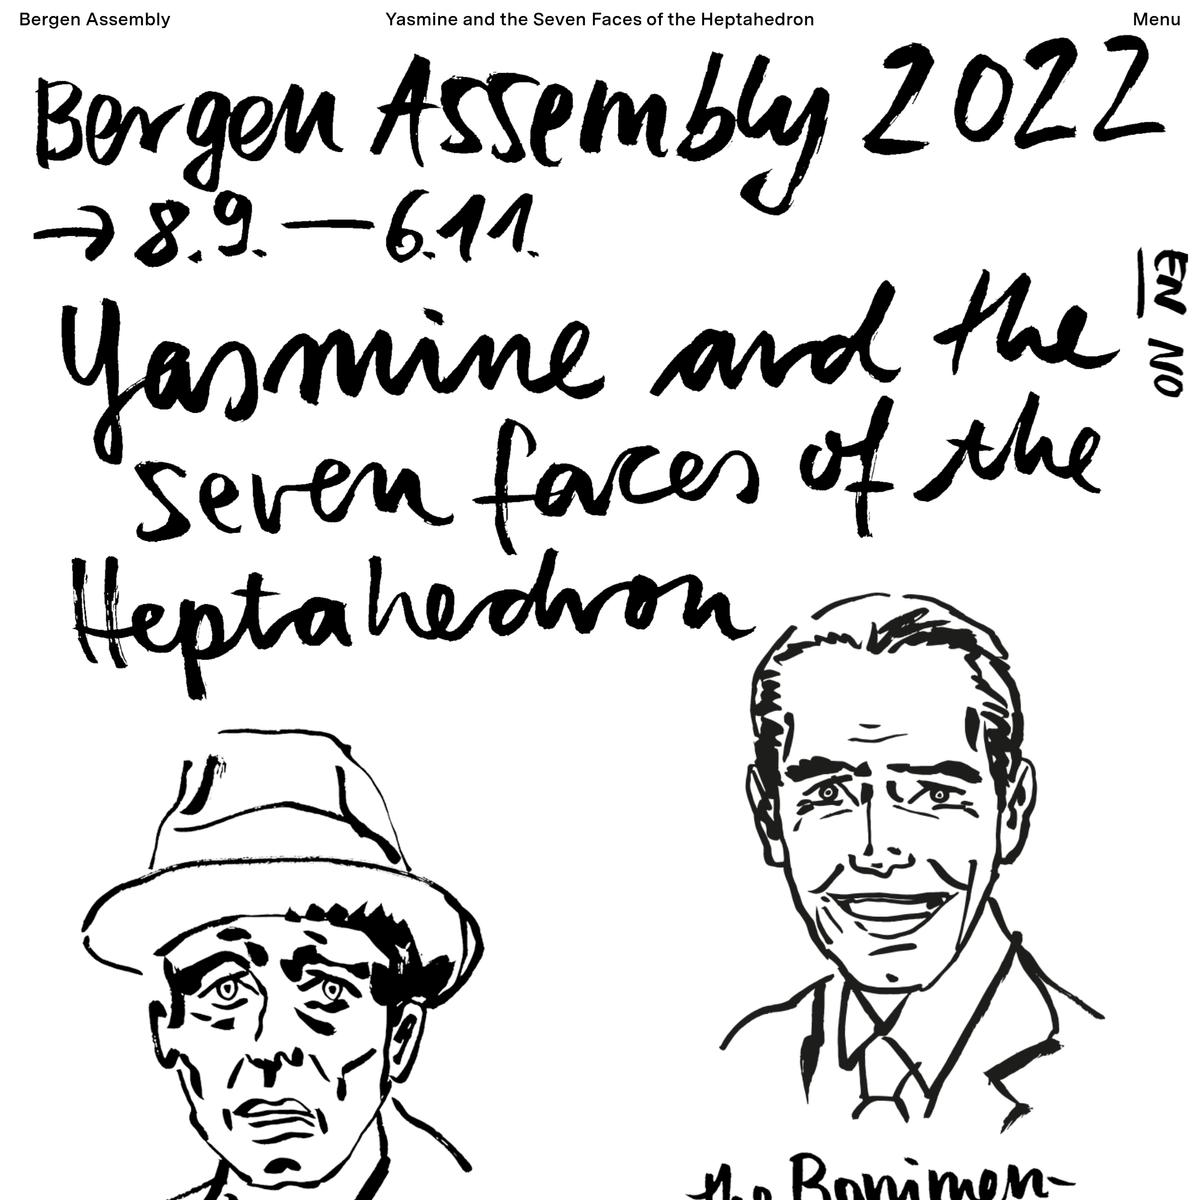 Bergen Assembly
Yasmine and the Seven Faces of the Heptahedron
Menu
Bergen Assembly 2022
→ 8.9. — 6.11.
EN NO
Yasmine and the
seven faces of the
Heptahedron
the Bonimen-